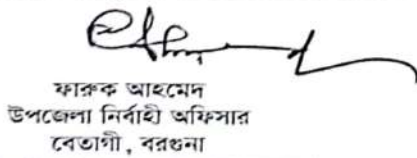 ফারুক আহমেদ
উপজেলা নির্বাহী অফিসার
বেতাগী, বরগুনা